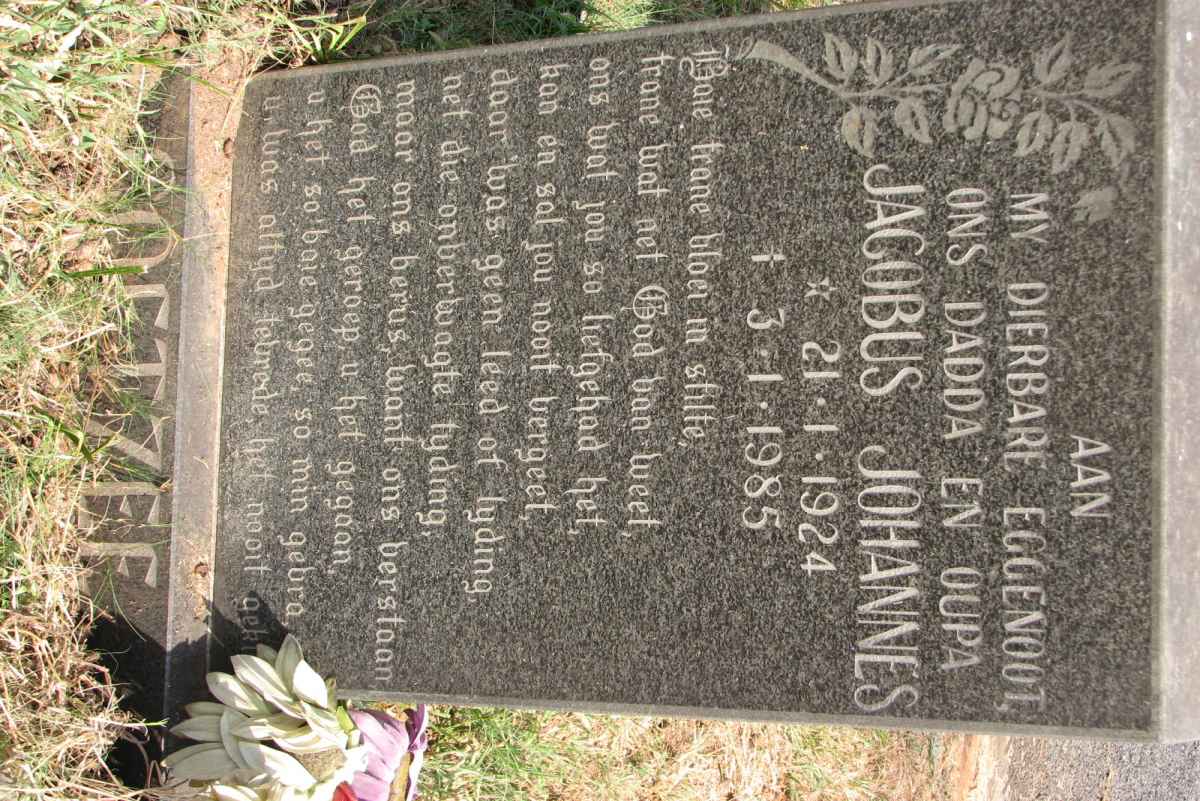 AAN
MY DIERBARE EGGENOOT,
ONS DADDA EN OUPA
JACOBUS JOHANNES
* 21·1·1924
† 3·1·1985
Baie trane vloei in stilte,
trane wat net God van weet,
ons wat jou so liefgehad het,
kan en sal jou nooit vergeet,
daar was geen leed of lyding,
net die onverwagte tyding,
maar ons berus, want ons verstaan
God het geroep u het gegaan
u het so baie gegee so min gevra
u was altyd tevrede, het nooit